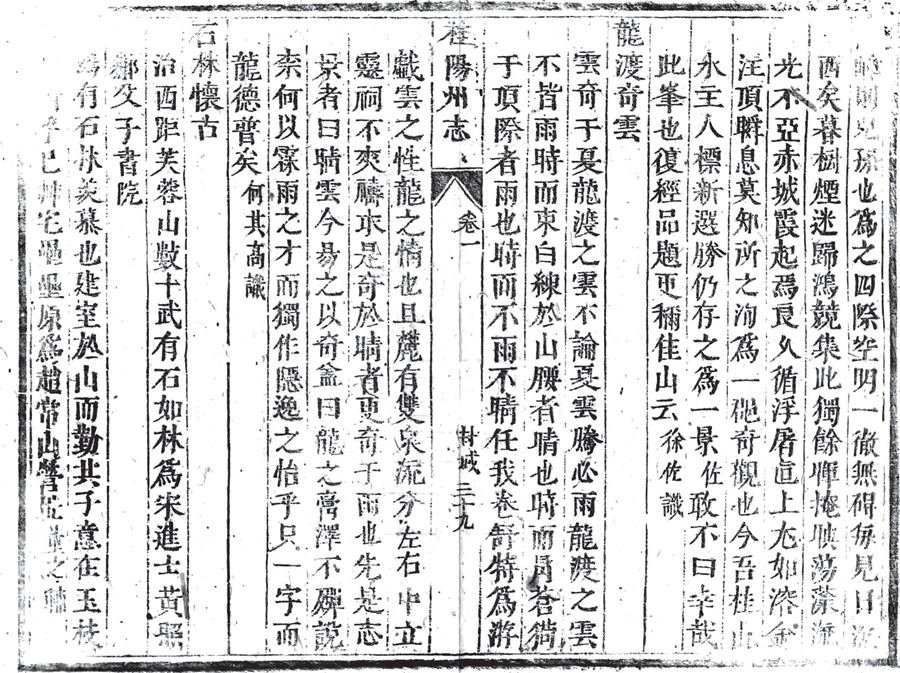 兒孫也為之四際空明一徹無碍每見日沉
酉矣暮樹煙迷歸鴻競集此獨餘暉掩映蕩漾
光不亞赤城霞起焉良久循浮屠直上尤如溶金
注頂瞬息莫知所之洵為一絕奇觀也今吾桂山
水主人標新選勝仍存之為一景佐敢不曰幸哉
此峯也復經品題更稱佳山云 徐佐識
龍渡奇雲
雲奇于夏龍渡之雲不論夏雲騰必雨龍渡之雲
不皆雨時而束白練於山腰者晴也時而蒼狗
于頂際者雨也時而不雨不晴任我卷舒特為游
桂陽州志 卷一 封域 三十九
戲雲之性龍之情也且麓有雙泉流分左右中立
靈祠不爽禱求是奇於晴者更奇于雨也先是志
景者曰晴雲今易之以奇盒曰龍之膏澤不殫說
柰何以霖雨之才而獨作隱逸之怡乎只一字而
龍德普矣 何其高識
石林懷古
治西距芙蓉山數十武有石如林為宋進士黃照
鄰父子書院
有石林羨慕也建室於山而勤其子意在玉枝
原為趙常山營